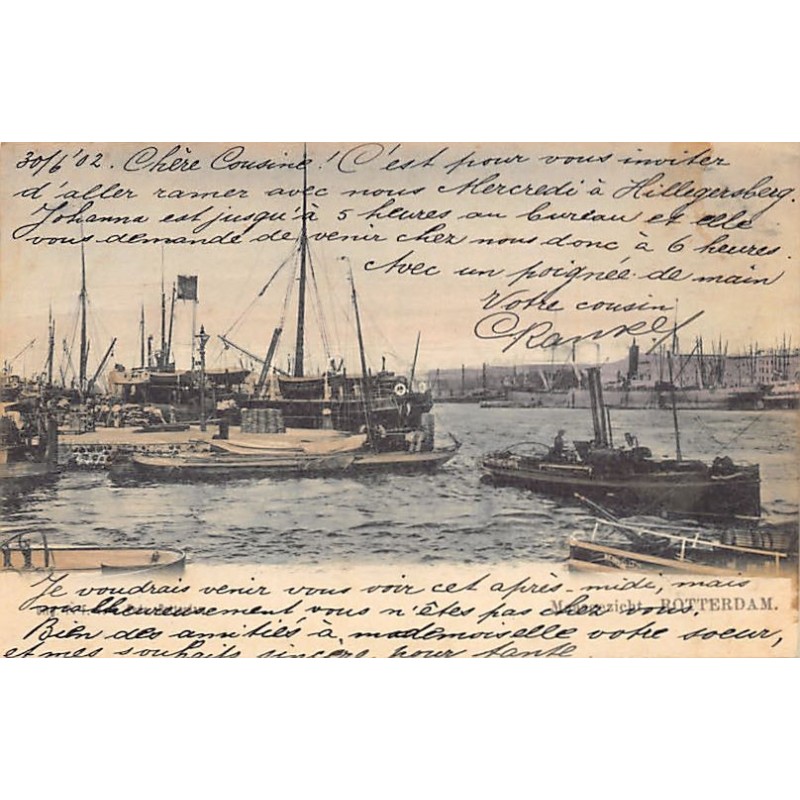 30/6'02. Chère Cousine! C'est pour vous inviter
d'aller ramer avec nous Mercredi à Hillegersberg.
Johanna est jusqu'à 5 heures au bureau et elle
vous demande de venir chez nous donc à 6 heures.
Avec un poignée de main
Votre cousin
Je voudrais venir vous voir cet après-midi, mais
malheureusement vous n'êtes pas chez vous.
ROTTERDAM.
Bien des amitiés à mademoiselle votre soeur,
et mes souhaits sincers pour tante